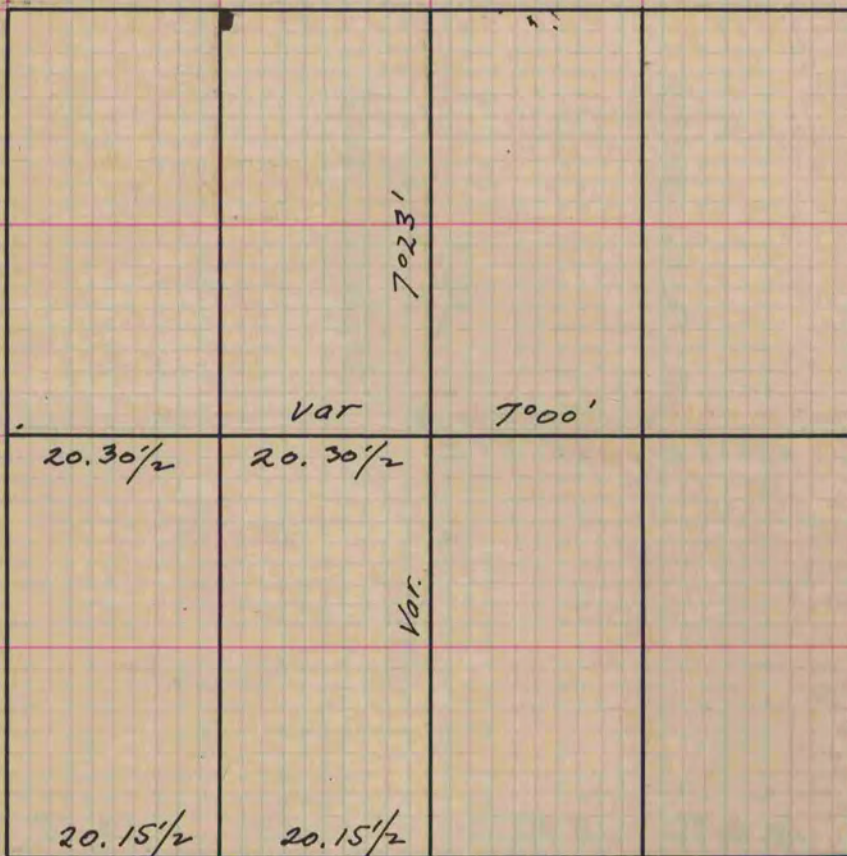 7°23'
Var 7°00'
20.30 1/2 20.30 1/2
Var.
20.15 1/2 20.15 1/2